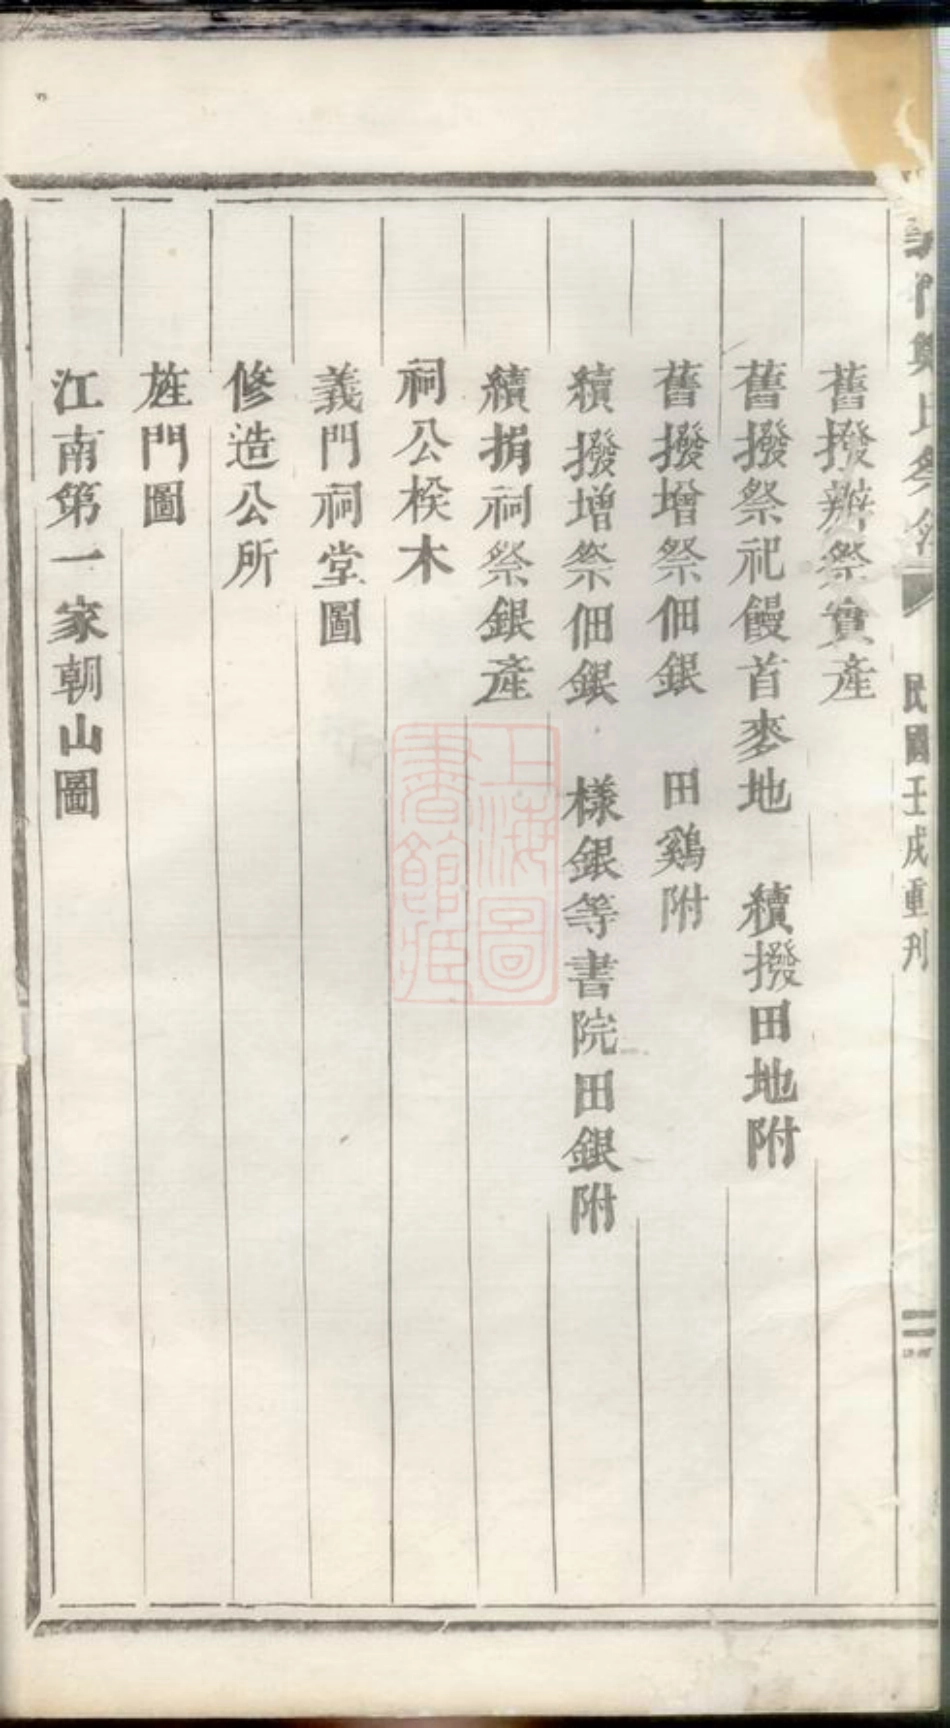 義門鄭氏祭簿 民國壬戌重刋 二
舊撥辦祭實產
舊撥祭祀饅首麥地 續撥田地附
舊撥增祭佃銀 田鷄附
續撥增祭佃銀 樣銀等書院田銀附
續捐祠祭銀產
祠公楘木
義門祠堂圖
修造公所
旌門圖
江南第一家朝山圖
上海圖書館藏